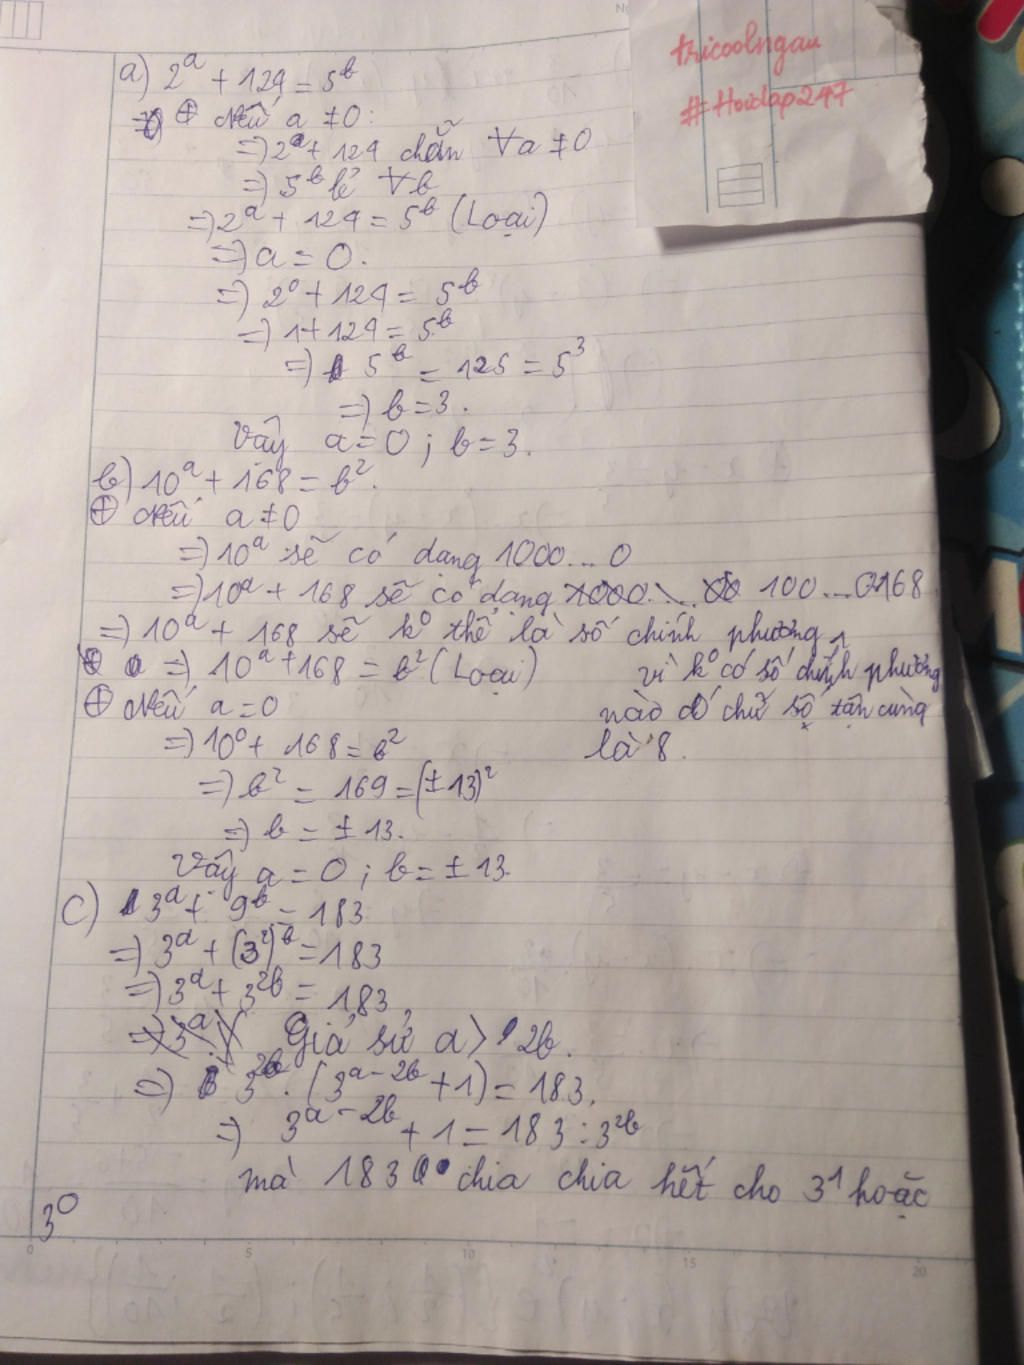 thicoolngau
#Hoidap247
a) 2^a + 124 = 5^b
⊕ Nếu a ≠ 0:
=> 2^a + 124 chẵn ∀a ≠ 0
=> 5^b lẻ ∀b
=> 2^a + 124 = 5^b (Loại)
=> a = 0.
=> 2^0 + 124 = 5^b
=> 1 + 124 = 5^b
=> 5^b = 125 = 5^3
=> b = 3.
Vậy a = 0 ; b = 3.
b) 10^a + 168 = b^2.
⊕ Nếu a ≠ 0
=> 10^a sẽ có dạng 1000...0
=> 10^a + 168 sẽ có dạng 100...0168
=> 10^a + 168 sẽ k^o thể là số chính phương,
=> 10^a + 168 = b^2 (Loại) vì k^o có số chính phương
⊕ Nếu a = 0 nào có chữ số tận cùng
=> 10^0 + 168 = b^2 là 8.
=> b^2 = 169 = (±13)^2
=> b = ±13.
Vậy a = 0 ; b = ±13.
c) 3^a + 9^b = 183
=> 3^a + (3^2)^b = 183
=> 3^a + 3^2b = 183,
Giả sử a > 2b.
=> 3^2b . (3^a-2b + 1) = 183.
=> 3^a-2b + 1 = 183 : 3^2b
mà 183 chia chia hết cho 3^1 hoặc
3^0
0 5 10 15 20